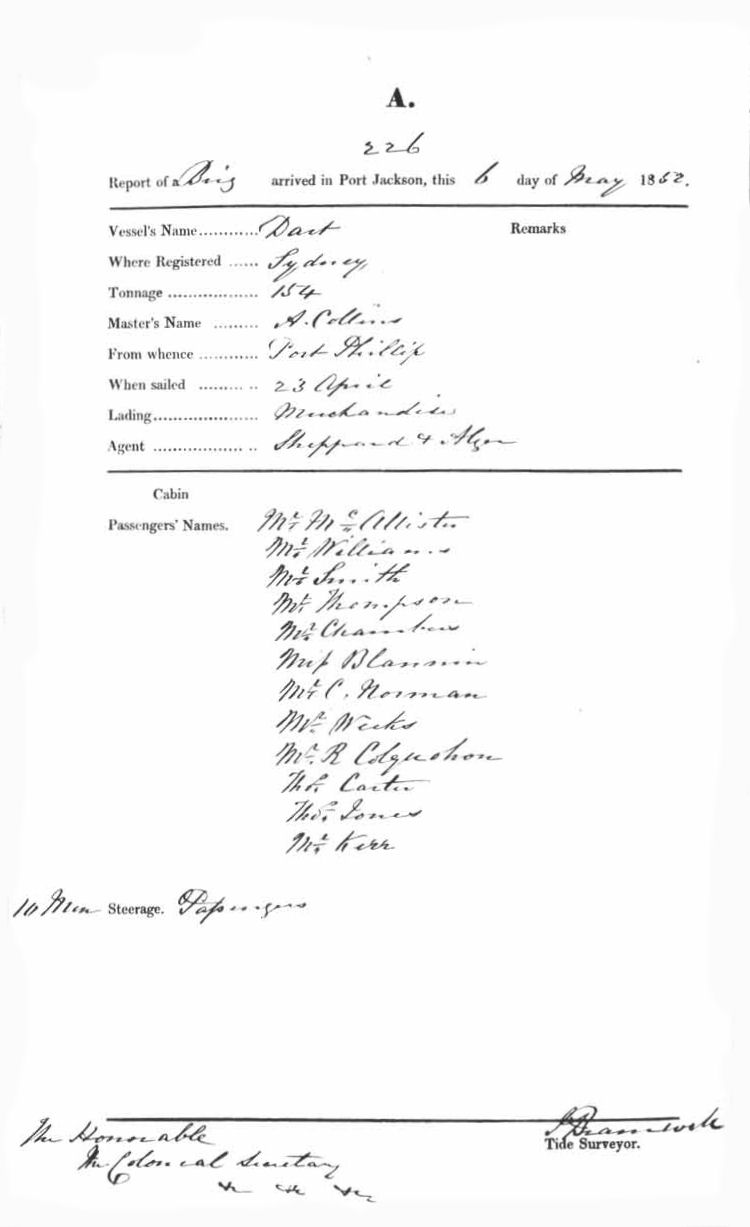 A.
226
Report of a Brig arrived in Port Jackson, this 6 day of May 1852.
Vessel's Name............ Dart Remarks
Where Registered ...... Sydney,
Tonnage .................. 154
Master's Name ......... A. Collins
From whence ............ Port Phillip
When sailed ......... .. 23 April
Lading..................... Merchandise
Agent .................. .. Sheppard & Alger
Cabin
Passengers' Names. Mr. McAllister
Mr. Williams
Mr. Smith
Mr. Thompson
Mr. Chambers
Miss Blannin
Mr. C. Norman
Mr. Weeks
Mr. R Colquohon
Thos. Carter
Thos. Jones
Mr. Kerr
10 Men Steerage. Passengers
The Honorable
The Colonial Secretary
Tide Surveyor.